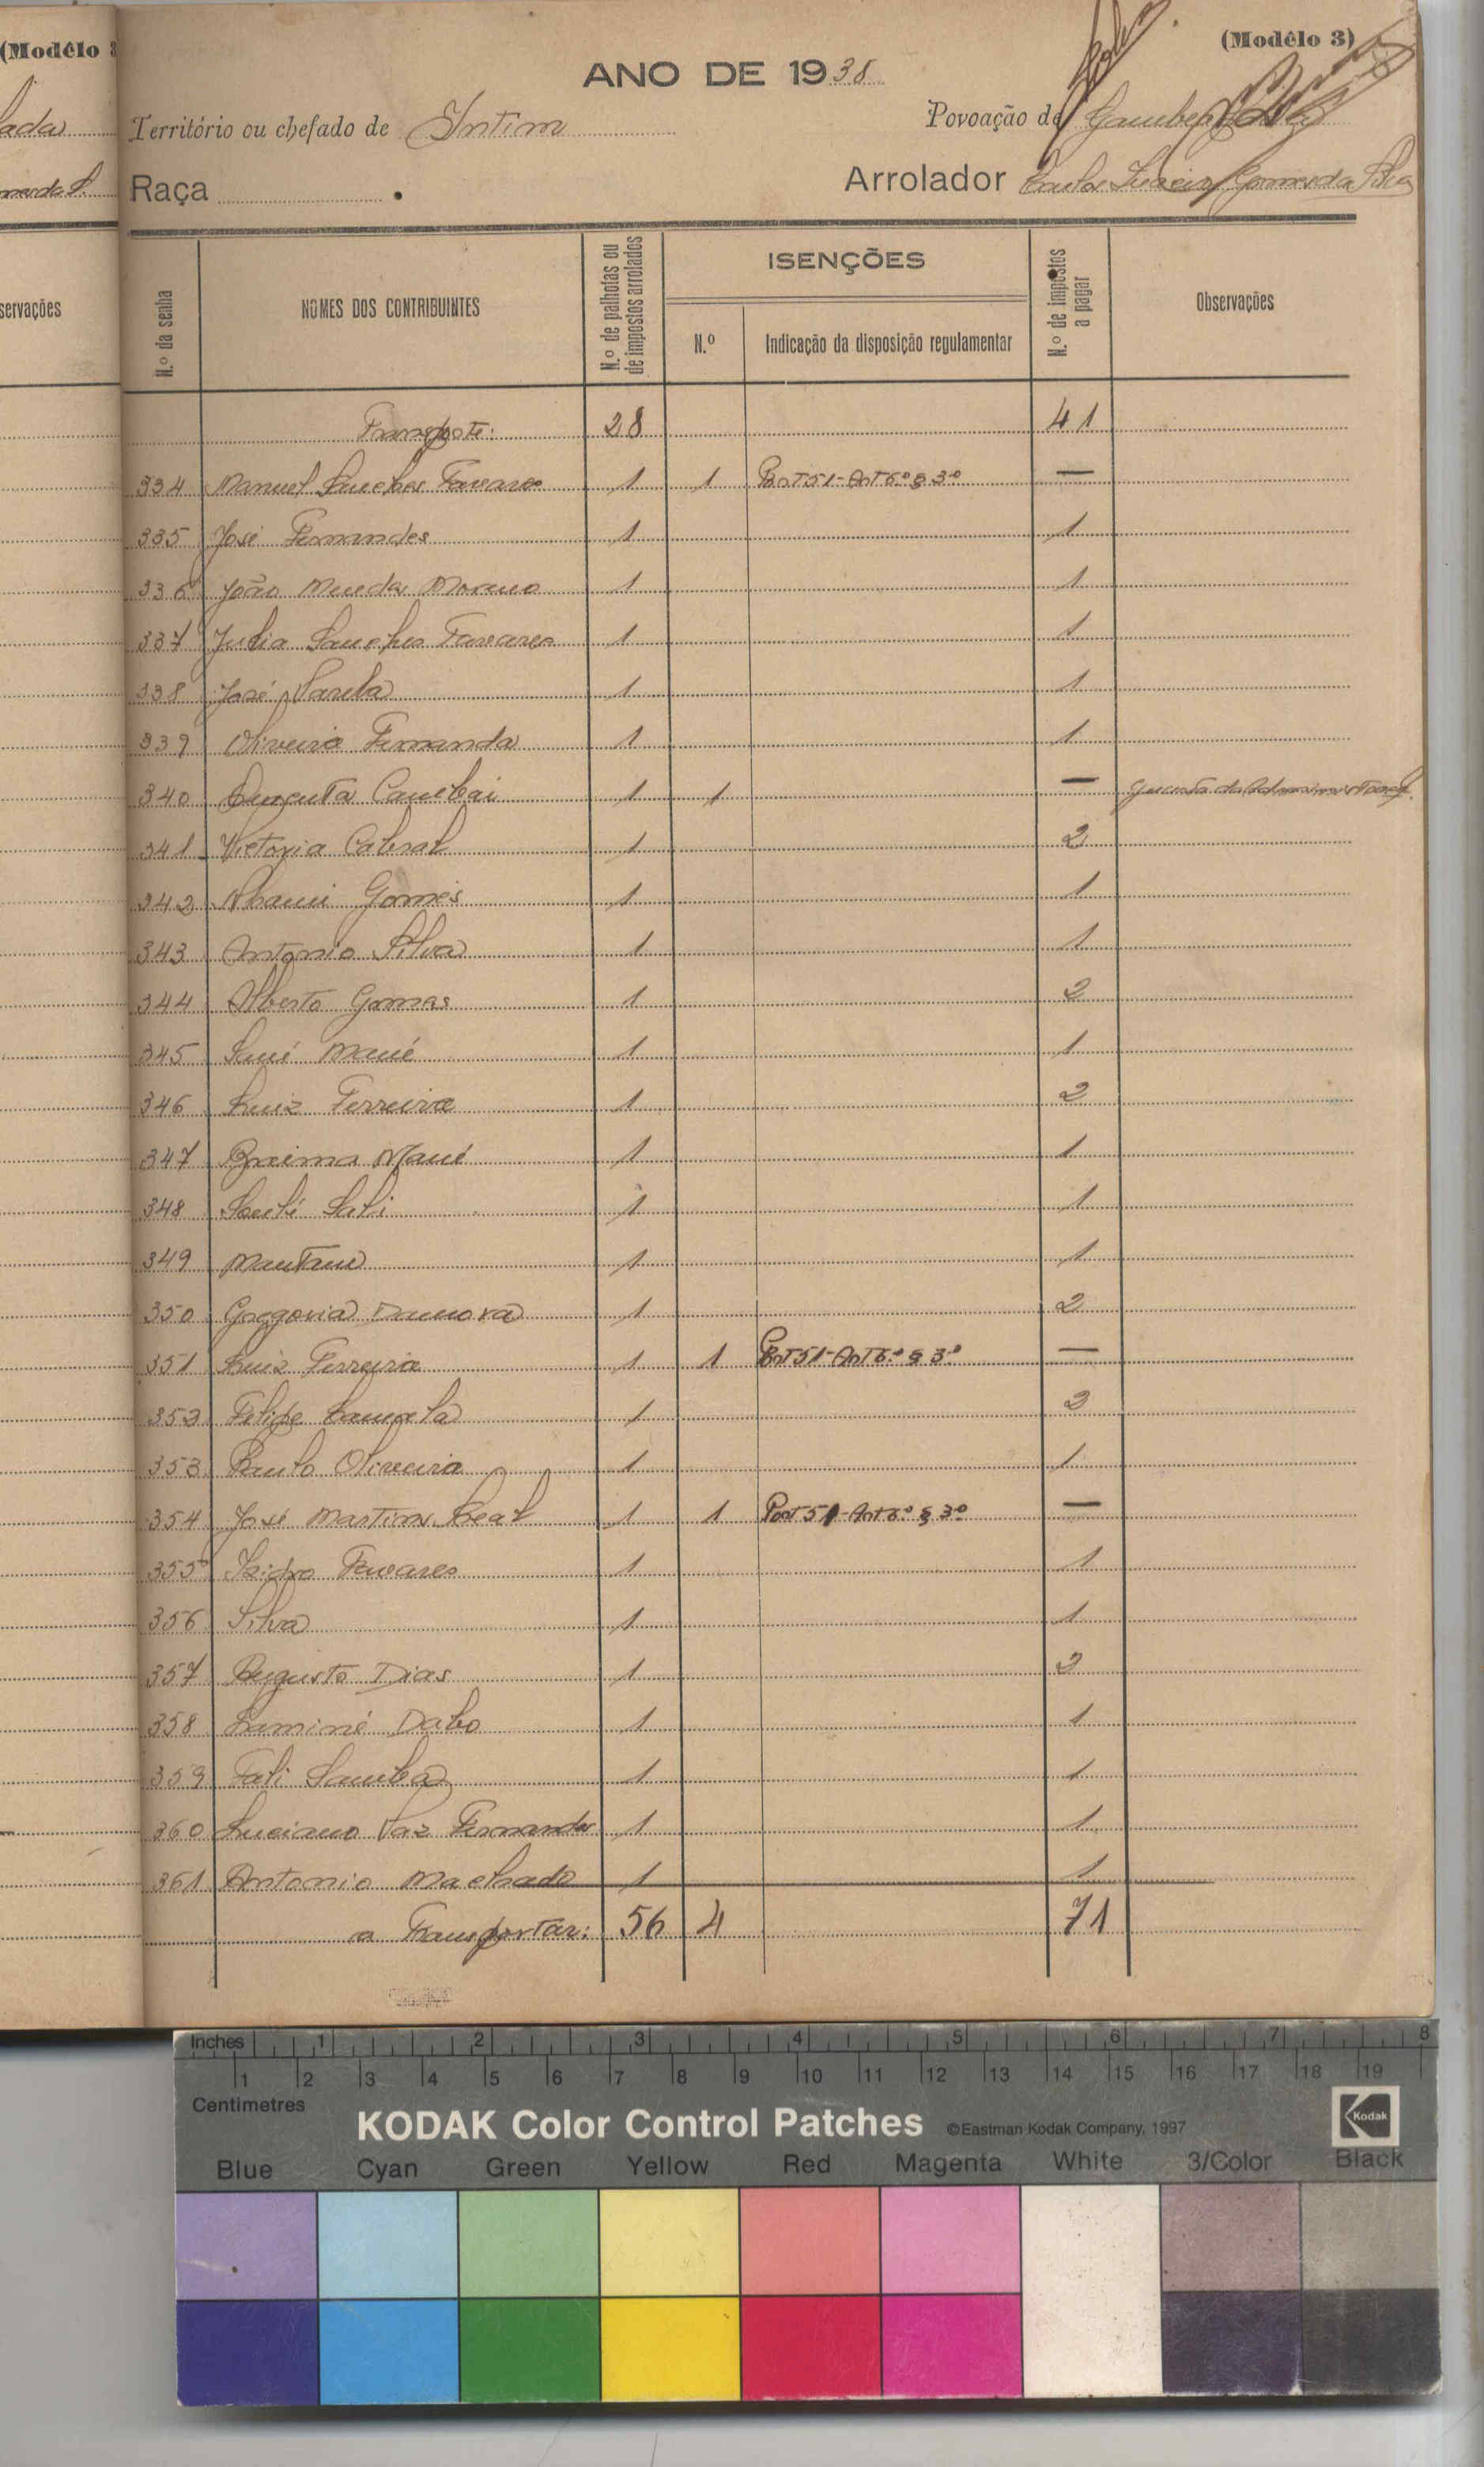 (Modêlo 3
(Modêlo 3)
ANO DE 1938
Território ou chefado de Intim
Povoação de
Raça
Arrolador Gomes da Silva
servações
N.º da senha
NOMES DOS CONTRIBUINTES
N.º de palhotas ou de impostos arrolados
ISENÇÕES
N.º
Indicação da disposição regulamentar
N.º de impostos a pagar
Observações
Transporte: 28 41
334 Manuel Sanches Tavares 1 1 Port 51-Art 6.º § 3.º —
335 José Fernandes 1 1
336 João Mendes Moreno 1 1
337 Julia Sanches Tavares 1 1
338 José Varela 1 1
339 Oliveira Fernanda 1 1
340 1 1 —
341 Victoria Cabral 1 2
342 Gomes 1 1
343 Antonio Silva 1 1
344 Alberto Gomes 1 2
345 Mané 1 1
346 Luiz Ferreira 1 2
347 Braima Mané 1 1
348 1 1
349 1 1
350 Gregoria 1 2
351 Luiz Ferreira 1 1 Port 51-Art 6.º § 3.º —
352 Felipe 1 2
353 Paulo Oliveira 1 1
354 José Martins Leal 1 1 Port 51-Art 6.º § 3.º —
355 Isidro Tavares 1 1
356 Silva 1 1
357 Augusto Dias 1 2
358 Laminé Dabo 1 1
359 Fali Samba 1 1
360 Luciano Vaz Fernandes 1 1
361 Antonio Machado 1 1
a Transportar: 56 4 71
Inches 1 2 3 4 5 6 7 8
1 2 3 4 5 6 7 8 9 10 11 12 13 14 15 16 17 18 19
Centimetres
KODAK Color Control Patches ©Eastman Kodak Company, 1997 Kodak
Blue Cyan Green Yellow Red Magenta White 3/Color Black